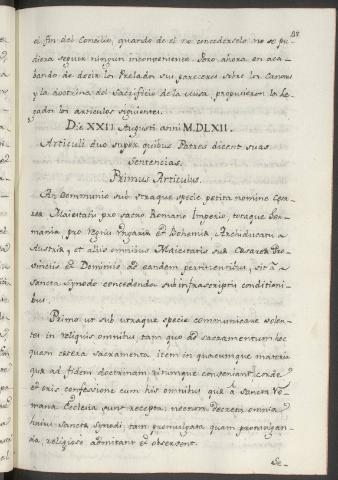 el fin del Concilio, quando de el no concederselo no se pu-
diera seguir ningun inconveniente. Pero ahora en aca-
bando de decir los Prelados sus pareceres sobre los Canones
y la doctrina del Sacrificio de la Misa, propusieron los le-
gados los articulos siguientes.
Die XXII Augusti anni M.DLXII.
Articuli duo super quibus Patres dicent suas
sententias.
Primus Articulus.
An Communio sub utraque specie petita nomine Cesa-
rea Maiestatis pro sacro Romano Imperio, totaque Ger-
mania, pro Regnis Ungariæ et Bohemiæ Archiducatu
Austriæ, et aliis omnibus Maiestatis suæ Cesareæ Pro-
vinciis et Dominiis ad eandem pertinentibus, sit a
Sancta Synodo concedenda sub infrascriptis conditioni-
bus.
Primo ut sub utraque specie communicare volen-
tes in reliquis omnibus, tam quo ad sacramentum hoc
quam cetera sacramenta item in quacumque materia
quæ ad fidem doctrinam, ritumque conveniant corde
et oris confessione cum his omnibus quæ a Sancta Ro-
mana Ecclesia sunt recepta, necnon decreta omnia
huius Sancta Synodi, tam promulgata quam promulgan-
da, religiose admittant et observent.
Se-